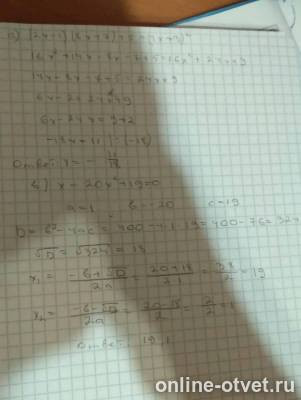 16x² + 14x - 8x - 7 + 5 = 16x² + 24x + 9
14x - 8x - 7 + 5 = 24x + 9
6x - 2 = 24x + 9
6x - 24x = 9 + 2
-18x = 11 | : (-18)
Ответ: x = - 11/18
в) x - 20x² + 19 = 0
a = 1 b = -20 c = 19
D = b² - 4ac = 400 - 4·1·19 = 400 - 76 = 324
√D = √324 = 18
x₁ = -b+√D/2a = 20+18/2·1 = 38/2 = 19
x₂ = -b-√D/2a = 20-18/2 = 2/2 = 1
Ответ: 19, 1
online-otvet.ru